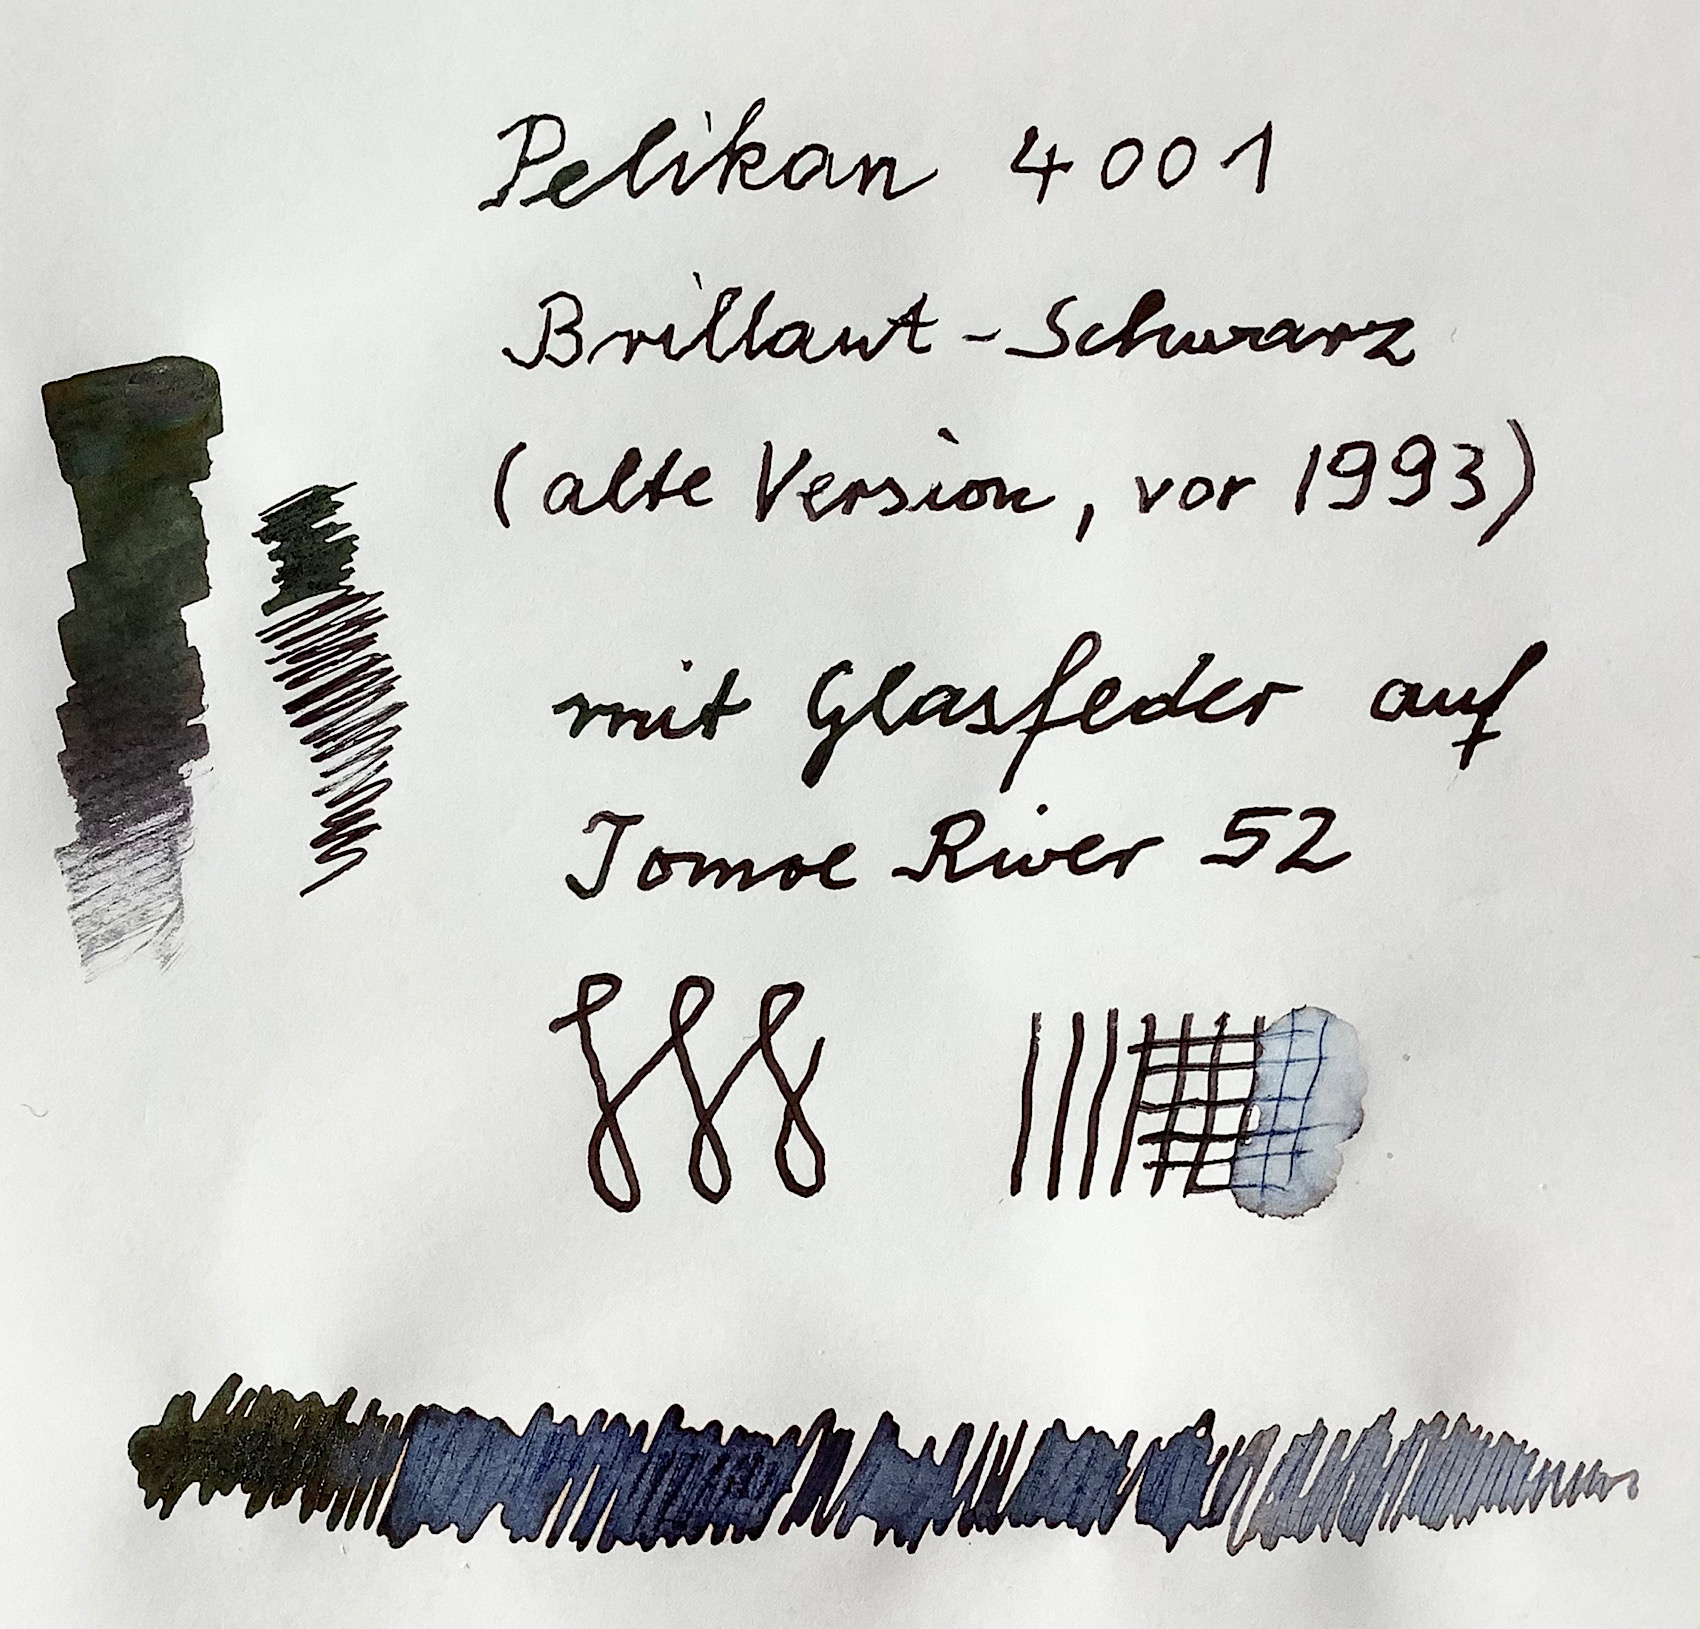 Pelikan 4001
Brillant-Schwarz
(alte Version, vor 1993)
mit Glasfeder auf
Tomoe River 52